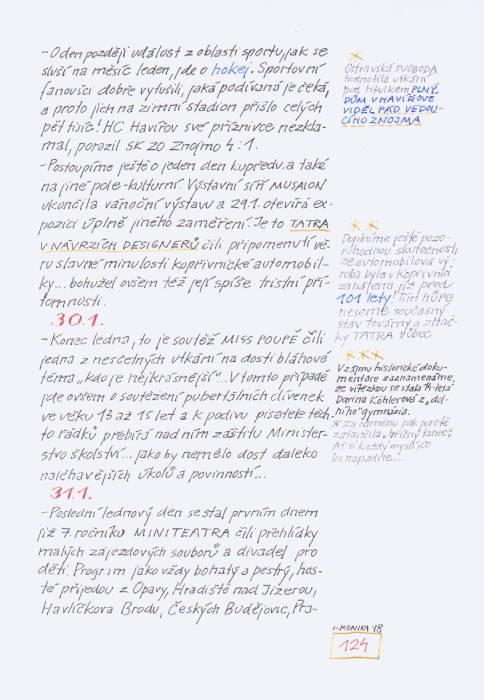 -O den později událost z oblasti sportu, jak se
sluší na měsíc leden, jde o hokej. Sportovní
fanoušci dobře vytušili, jaká podívaná je čeká,
a proto jich na zimní stadion přišlo celých
pět tisíc! HC Havířov své příznivce nezkla-
mal, porazil SK 20 Znojmo 4:1.
-Postoupíme ještě o jeden den kupředu, a také
na jiné pole-kulturní. Výstavní síň MUSAION
ukončila vánoční výstavu a 29.1. otevírá ex-
pozici úplně jiného zaměření. Je to TATRA
V NÁVRZÍCH DESIGNERŮ čili připomenutí vě-
ru slavné minulosti kopřivnické automobil-
ky... bohužel ovšem též její spíše tristní pří-
tomnosti.
30.1.
-Konec ledna, to je soutěž MISS POUPĚ čili
jedna z nesčetných utkání na dosti bláhové
téma „kdo je nejkrásnější"... V tomto případě
jde ovšem o soutěžení pubertálních dívenek
ve věku 13 až 15 let a k podivu pisatele těch-
to řádků přebírá nad ním záštitu Minister-
stvo školství... jako by nemělo dost daleko
naléhavějších úkolů a povinností...
31.1.
-Poslední lednový den se stal prvním dnem
již 7. ročníku MINITEATRA čili přehlídky
malých zájezdových souborů a divadel pro
děti. Program jako vždy bohatý a pestrý, hos-
té přijedou z Opavy, Hradiště nad Jizerou,
Havlíčkova Brodu, Českých Budějovic, Pra-
*
Ostravská SVOBODA
hodnotila utkání
pod titulkem PLNÝ
DŮM V HAVÍŘOVĚ
VIDĚL PÁD VEDOU-
CÍHO ZNOJMA
**
Doplníme ještě pozo-
ruhodnou skutečnost,
že automobilová vý-
roba byla v Kopřivnici
zahájena již před
101 lety! Tím hůře
neseme současný
stav továrny a znač-
ky TATRA vůbec
***
V zájmu historické doku-
mentace zaznamenáme,
že vítězkou se stala 14-letá
Darina Köhlerová z „dol-
ního" gymnázia.
za odměnu pak porotě
zatančila „břišní tanec".
Ať si každý myslí co
ho napadne...
KRONIKA 98
124